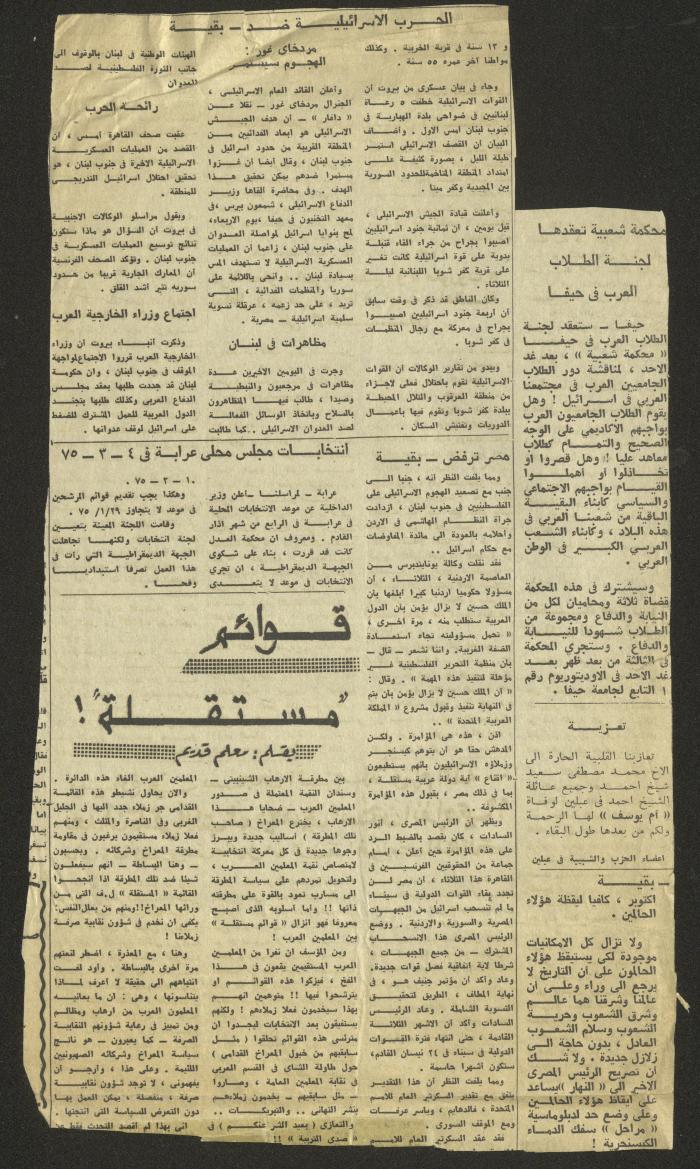 الحرب الاسرائيلية ضد — بقية
و ١٣ سنة في قرية الخريبة . وكذلك
مواطنا آخر عمره ٥٥ سنة .
وجاء في بيان عسكري من بيروت أن
القوات الاسرائيلية خطفت ٥ رعاة
لبنانيين في ضواحي بلدة الهبارية في
جنوب لبنان أمس الاول . وأضاف
البيان ان القصف الاسرائيلي استمر
طيلة الليل ، بصورة كثيفة على
امتداد المنطقة المتاخمة للحدود السورية
بين المجيدية وكفر مينا .
وأعلنت قيادة الجيش الاسرائيلي ،
قبل يومين ، ان ثمانية جنود اسرائيليين
اصيبوا بجراح من جراء القاء قنبلة
يدوية على قوة اسرائيلية كانت تغير
على قرية كفر شوبا اللبنانية ليلة
الثلاثاء .
وكان الناطق قد ذكر في وقت سابق
ان أربعة جنود اسرائيليين اصيبوا
بجراح في معركة مع رجال المنظمات
في كفر شوبا .
ويبدو من تقارير الوكالات ان القوات
الاسرائيلية تقوم باحتلال فعلي لاجزاء
من منطقة العرقوب والتلال المحيطة
ببلدة كفر شوبا وتقوم فيها باعمال
الدوريات وتفتيش السكان .
مردخاي غور :
الهجوم سيستمر
وأعلن القائد العام الاسرائيلي ،
الجنرال مردخاي غور — نقلا عن
« دافار » — ان هدف الجيش
الاسرائيلي هو ابعاد الفدائيين من
المنطقة القريبة من حدود اسرائيل في
جنوب لبنان ، وقال ايضا ان غزوا
مستمرا ضدهم يمكن تحقيق هذا
الهدف . وفي محاضرة القاها وزير
الدفاع الاسرائيلي ، شمعون بيرس ،في
معهد التخنيون في حيفا ،يوم الاربعاء،
لمح بنوايا اسرائيل لمواصلة العدوان
على جنوب لبنان ، زاعما ان العمليات
العسكرية الاسرائيلية لا تستهدف المس
بسيادة لبنان .. وانحى باللائمة على
سوريا والمنظمات الفدائية ، التي
تريد ، على حد زعمه ، عرقلة تسوية
سلمية اسرائيلية — مصرية .
مظاهرات في لبنان
وجرت في اليومين الاخيرين عدة
مظاهرات في مرجعيون والنبطية
وصيدا ، طالب فيها المتظاهرون
بالسلاح وباتخاذ الوسائل الفعالة
لصد العدوان الاسرائيلي ..كما طالبت
الهيئات الوطنية في لبنان بالوقوف الى
جانب الثورة الفلسطينية لصد
العدوان
رائحة الحرب
عقبت صحف القاهرة امس ، ان
القصد من العمليات العسكرية
الاسرائيلية الاخيرة في جنوب لبنان ، هو
تحقيق احتلال اسرائيل التدريجي
للمنطقة .
ويقول مراسلو الوكالات الاجنبية
في بيروت ان السؤال هو ماذا ستكون
نتائج توسيع العمليات العسكرية في
جنوب لبنان . وتؤكد الصحف الفرنسية
ان المعارك الجارية قريبا من حدود
سوريه تثير أشد القلق .
اجتماع وزراء الخارجية العرب
وذكرت أنباء بيروت ان وزراء
الخارجية العرب قرروا الاجتماع لمواجهة
الموقف في جنوب لبنان ، وان حكومة
لبنان قد جددت طلبها بعقد مجلس
الدفاع العربي وكذلك طلبها بتجند
الدول العربية للعمل المشترك للضغط
على اسرائيل لوقف عدوانها .
محكمة شعبية تعقدها
لجنة الطلاب
العرب في حيفا
حيفا — ستعقد لجنة
الطلاب العرب في حيفا
« محكمة شعبية » ، بعد غد
الاحد ، لمناقشة دور الطلاب
الجامعيين العرب في مجتمعنا
العربي في اسرائيل ! وهل
يقوم الطلاب الجامعيون العرب
بواجبهم الاكاديمي على الوجه
الصحيح والتمام كطلاب
معاهد عليا ! وهل قصروا او
تخاذلوا او اهملوا
القيام بواجبهم الاجتماعي
والسياسي كأبناء البقية
الباقية من شعبنا العربي في
هذه البلاد ، وكأبناء الشعب
العربي الكبير في الوطن
العربي .
وسيشترك في هذه المحكمة
قضاة ثلاثة ومحاميان لكل من
النيابة والدفاع ومجموعة من
الطلاب شهودا للنيابة
والدفاع . وستجري المحكمة
في الثالثة من بعد ظهر بعد
غد الاحد في الاوديتوريوم رقم
١ التابع لجامعة حيفا .
تعزية
تعازينا القلبية الحارة الى
الاخ محمد مصطفى سعيد
شيخ احمد وجميع عائلة
الشيخ احمد في عبلين لوفاة
« أم يوسف » لها الرحمة
ولكم من بعدها طول البقاء .
اعضاء الحزب والشبيبة في عبلين
— بقية
اكتوبر ، كافيا ليقظة هؤلاء
الحالمين .
ولا تزال كل الامكانيات
موجودة لكي يستيقظ هؤلاء
الحالمون على ان التاريخ لا
يرجع الى وراء وعلى ان
عالمنا وشرقنا هما عالم
وشرق الشعوب وحرية
الشعوب وسلام الشعوب
العادل ، بدون حاجة الى
زلازل جديدة . ولا شك
ان تصريح الرئيس المصري
الاخير الى « النهار »يساعد
على ايقاظ هؤلاء الحالمين
وعلى وضع حد لدبلوماسية
« مراحل » سفك الدماء
الكيسنجرية !
مصر ترفض — بقية
ومما يلفت النظر انه ، جنبا الى
جنب مع تصعيد الهجوم الاسرائيلي على
الفلسطينيين في جنوب لبنان ، ازدادت
جرأة النظام الهاشمي في الاردن
واحلامه بالعودة الى مائدة المفاوضات
مع حكام اسرائيل ..
فقد نقلت وكالة يونايتدبرس من
العاصمة الاردنية ، الثلاثاء ، ان
مسؤولا حكوميا أردنيا كبيرا أبلغها بان
الملك حسين لا يزال يؤمن بان الدول
العربية ستطلب منه ، مرة اخرى ،
« تحمل مسؤوليته تجاه استعادة
الضفة الغربية. واننا نشعر — قال —
بان منظمة التحرير الفلسطينية غير
مؤهلة لتنفيذ هذه المهمة » . وقال :
« ان الملك حسين لا يزال يؤمن بان يتم
في النهاية تنفيذ وقبول مشروع « المملكة
العربية المتحدة » ..
اذن ، هذه هي المؤامرة . ولكن
المدهش حقا هو ان يتوهم كيسنجر
وزملاؤه الاسرائيليون بانهم يستطيعون
« اقناع » أية دولة عربية مستقلة ،
بما في ذلك مصر ، بقبول هذه المؤامرة
المكشوفة ..
ويظهر ان الرئيس المصري ، أنور
السادات ، كان يقصد بالضبط الرد
على هذه المؤامرة حين أعلن ، أمام
جماعة من الحقوقيين الفرنسيين في
القاهرة هذا الثلاثاء ، ان مصر لن
تجدد بقاء القوات الدولية في سيناء
ما لم تنسحب اسرائيل من الجبهات
المصرية والسورية والاردنية . ووضع
الرئيس المصري هذا الانسحاب
المشترك — من جميع الجبهات ،
شرطا لاية اتفاقية فصل قوات جديدة.
وعاد وأكد ان مؤتمر جنيف هو ، في
نهاية المطاف ، الطريق لتحقيق
التسوية الشاملة . وعاد الرئيس
السادات وأكد ان الاشهر الثلاثة
القادمة ، حتى انتهاء فترة القوات
الدولية في سيناء في ٢٤ نيسان القادم،
ستكون أشهرا حاسمة .
ومما يلفت النظر ان هذا التقدير
يتفق مع تقدير السكرتير العام للامم
المتحدة ، فالدهايم ، وياسر عرفات
ومع الموقف السوري .
فقد عقد السكرتير العام للامم
انتخابات مجلس محلي عرابة في ٤ — ٣ — ٧٥
عرابة — لمراسلنا —أعلن وزير
الداخلية عن موعد الانتخابات المحلية
في عرابة في الرابع من شهر آذار
القادم . ومعروف ان محكمة العدل
كانت قد قررت ، بناء على شكوى
الجبهة الديمقراطية ، ان تجري
الانتخابات في موعد لا يتعدى
١٠ — ٢ — ٧٥ .
وهكذا يجب تقديم قوائم المرشحين
في موعد لا يتجاوز ٧٥/١/٢٩ .
وقامت اللجنة المعينة بتعيين
لجنة انتخابات ولكنها تجاهلت
الجبهة الديمقراطية التي رات في
هذا العمل تصرفا استبداديا
وقحا .
قوائم
"مستقلة" !
بقلم : معلم قديم
بين مطرقة الارهاب الشينبيني —
وسندان النقمة المعتملة في صدور
المعلمين العرب — ضحايا هذا
الارهاب ، يخترع المعراخ ( صاحب
تلك المطرقة ) أساليب جديدة ويبرز
وجوها جديدة في كل معركة انتخابية
لامتصاص نقمة المعلمين العرب ،
ولتحويل تمردهم على سياسة المطرقة
الى مسارب تعود بالقوة على مطرقته
ذاتها !! واما أسلوبه الذي اصبح
معروفا فهو انزال « قوائم مستقلة »
بين المعلمين العرب !
ومن المؤسف ان نفرا من المعلمين
العرب المستقيمين يقعون في هذا
الفخ ، فيزكوا هذه القوائم او
يترشحوا فيها !! متوهمين انهم
بهذا سيخدمون فعلا زملاءهم ! ولكنهم
يستفيقون بعد الانتخابات ليجدوا ان
مرئسي هذه القوائم تحلقوا ( مثل
سابقيهم من خيول المعراخ القدامى )
حول طاولة الشاي في القسم العربي
في نقابة المعلمين العامة ، وصاروا
— مثل سابقيهم — يخدمون زملاءهم
بنشر التهاني .. والتبريكات ..
والتعازي ( بعيد الشر عنكم ) في
« صدى التربية » !!
المعلمين العرب الغاء هذه الدائرة .
والان يحاول نشيطو هذه القائمة
القدامى جر زملاء جدد اليها في الجليل
الغربي وفي الناصرة والمثلث ، ومنهم
فعلا زملاء مستقيمون يرغبون في مقاومة
مطرقة المعراخ وشركائه . ويحسبون
— وهنا البساطة — انهم سيفعلون
شيئا ضد تلك المطرقة اذا انجحوا
القائمة « المستقلة » ل.ف التي من
ورائها المعراخ!!ومنهم من يعلل النفس:
يكفي ان نخدم في شؤون نقابية صرفة
زملاءنا !
وهنا ، مع المعذرة ، اضطر لنعتهم
مرة اخرى بالبساطة . وأود لفت
انتباههم الى حقيقة لا اعرف لماذا
يتناسونها ، وهي : ان ما يعانيه
المعلمون العرب من ارهاب ومظالم
ومن تمييز في رعاية شؤونهم النقابية
الصرفة — كما يعبرون — هو ناتج
سياسة المعراخ وشركائه الصهيونيين
اللئيمة . وعلى هذا ، وأرجو ان
يفهموني ، لا توجد شؤون نقابية
صرفة ، منفصلة ، يمكن العمل بها
دون التعرض للسياسة التي انتجتها .
اني بهذا لم أقصد التحدث فقط عن